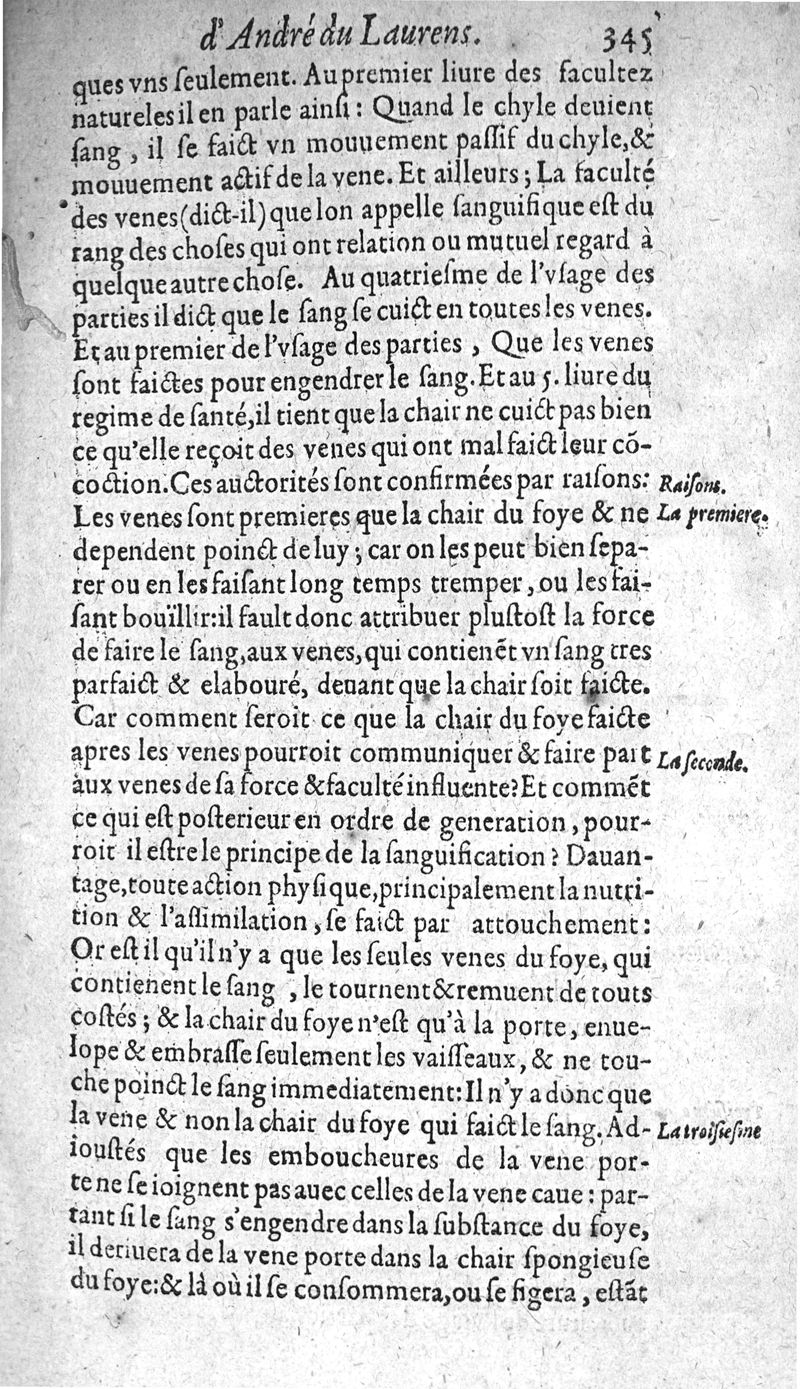 d'André du Laurens. 345
ques vns ſeulement. Au premier liure des facultez
natureles il en parle ainſi : Quand le chyle deuient
ſang, il ſe faict vn mouuement paſſif du chyle, &
mouuement actif de la vene. Et ailleurs ; La faculté
des venes (dict-il) que lon appelle ſanguifique eſt du
rang des choſes qui ont relation ou mutuel regard à
quelque autre choſe. Au quatrieſme de l'vſage des
parties il dict que le ſang ſe cuict en toutes les venes.
Et au premier de l'vſage des parties, Que les venes
ſont faictes pour engendrer le ſang. Et au 5. liure du
regime de ſanté, il tient que la chair ne cuict pas bien
ce qu'elle reçoit des venes qui ont mal faict leur cõ-
coction. Ces auctorités ſont confirmées par raiſons:
Raiſons.
Les venes ſont premieres que la chair du foye & ne
La premiere.
dependent poinct de luy ; car on les peut bien ſepa-
rer ou en les faiſant long temps tremper, ou les fai-
ſant bouïllir: il fault donc attribuer pluſtoſt la force
de faire le ſang, aux venes, qui contienẽt vn ſang tres
parfaict & elabouré, deuant que la chair ſoit faicte.
Car comment ſeroit ce que la chair du foye faicte
apres les venes pourroit communiquer & faire part
La ſeconde.
aux venes de ſa force & faculté influente? Et commẽt
ce qui eſt poſterieur en ordre de generation, pour-
roit il eſtre le principe de la ſanguification ? Dauan-
tage, toute action phyſique, principalement la nutri-
tion & l'aſſimilation, ſe faict par attouchement:
Or eſt il qu'il n'y a que les ſeules venes du foye, qui
contienent le ſang, le tournent & remuent de touts
coſtés ; & la chair du foye n'eſt qu'à la porte, enue-
lope & embraſſe ſeulement les vaiſſeaux, & ne tou-
che poinct le ſang immediatement: Il n'y a donc que
la vene & non la chair du foye qui faict le ſang. Ad-
La troiſieſme
iouſtés que les emboucheures de la vene por-
te ne ſe ioignent pas auec celles de la vene caue : par-
tant ſi le ſang s'engendre dans la ſubſtance du foye,
il deriuera de la vene porte dans la chair ſpongieuſe
du foye: & là où il ſe conſommera, ou ſe figera, eſtãt